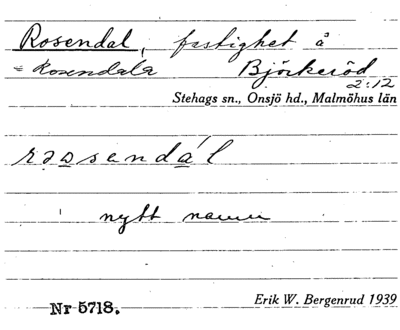 Rosendal, fastighet å
= Rosendala Björkeröd
2:12
Stehags sn., Onsjö hd., Malmöhus län
rɷsendál
nytt namn
Nr 5718.
Erik W. Bergenrud 1939